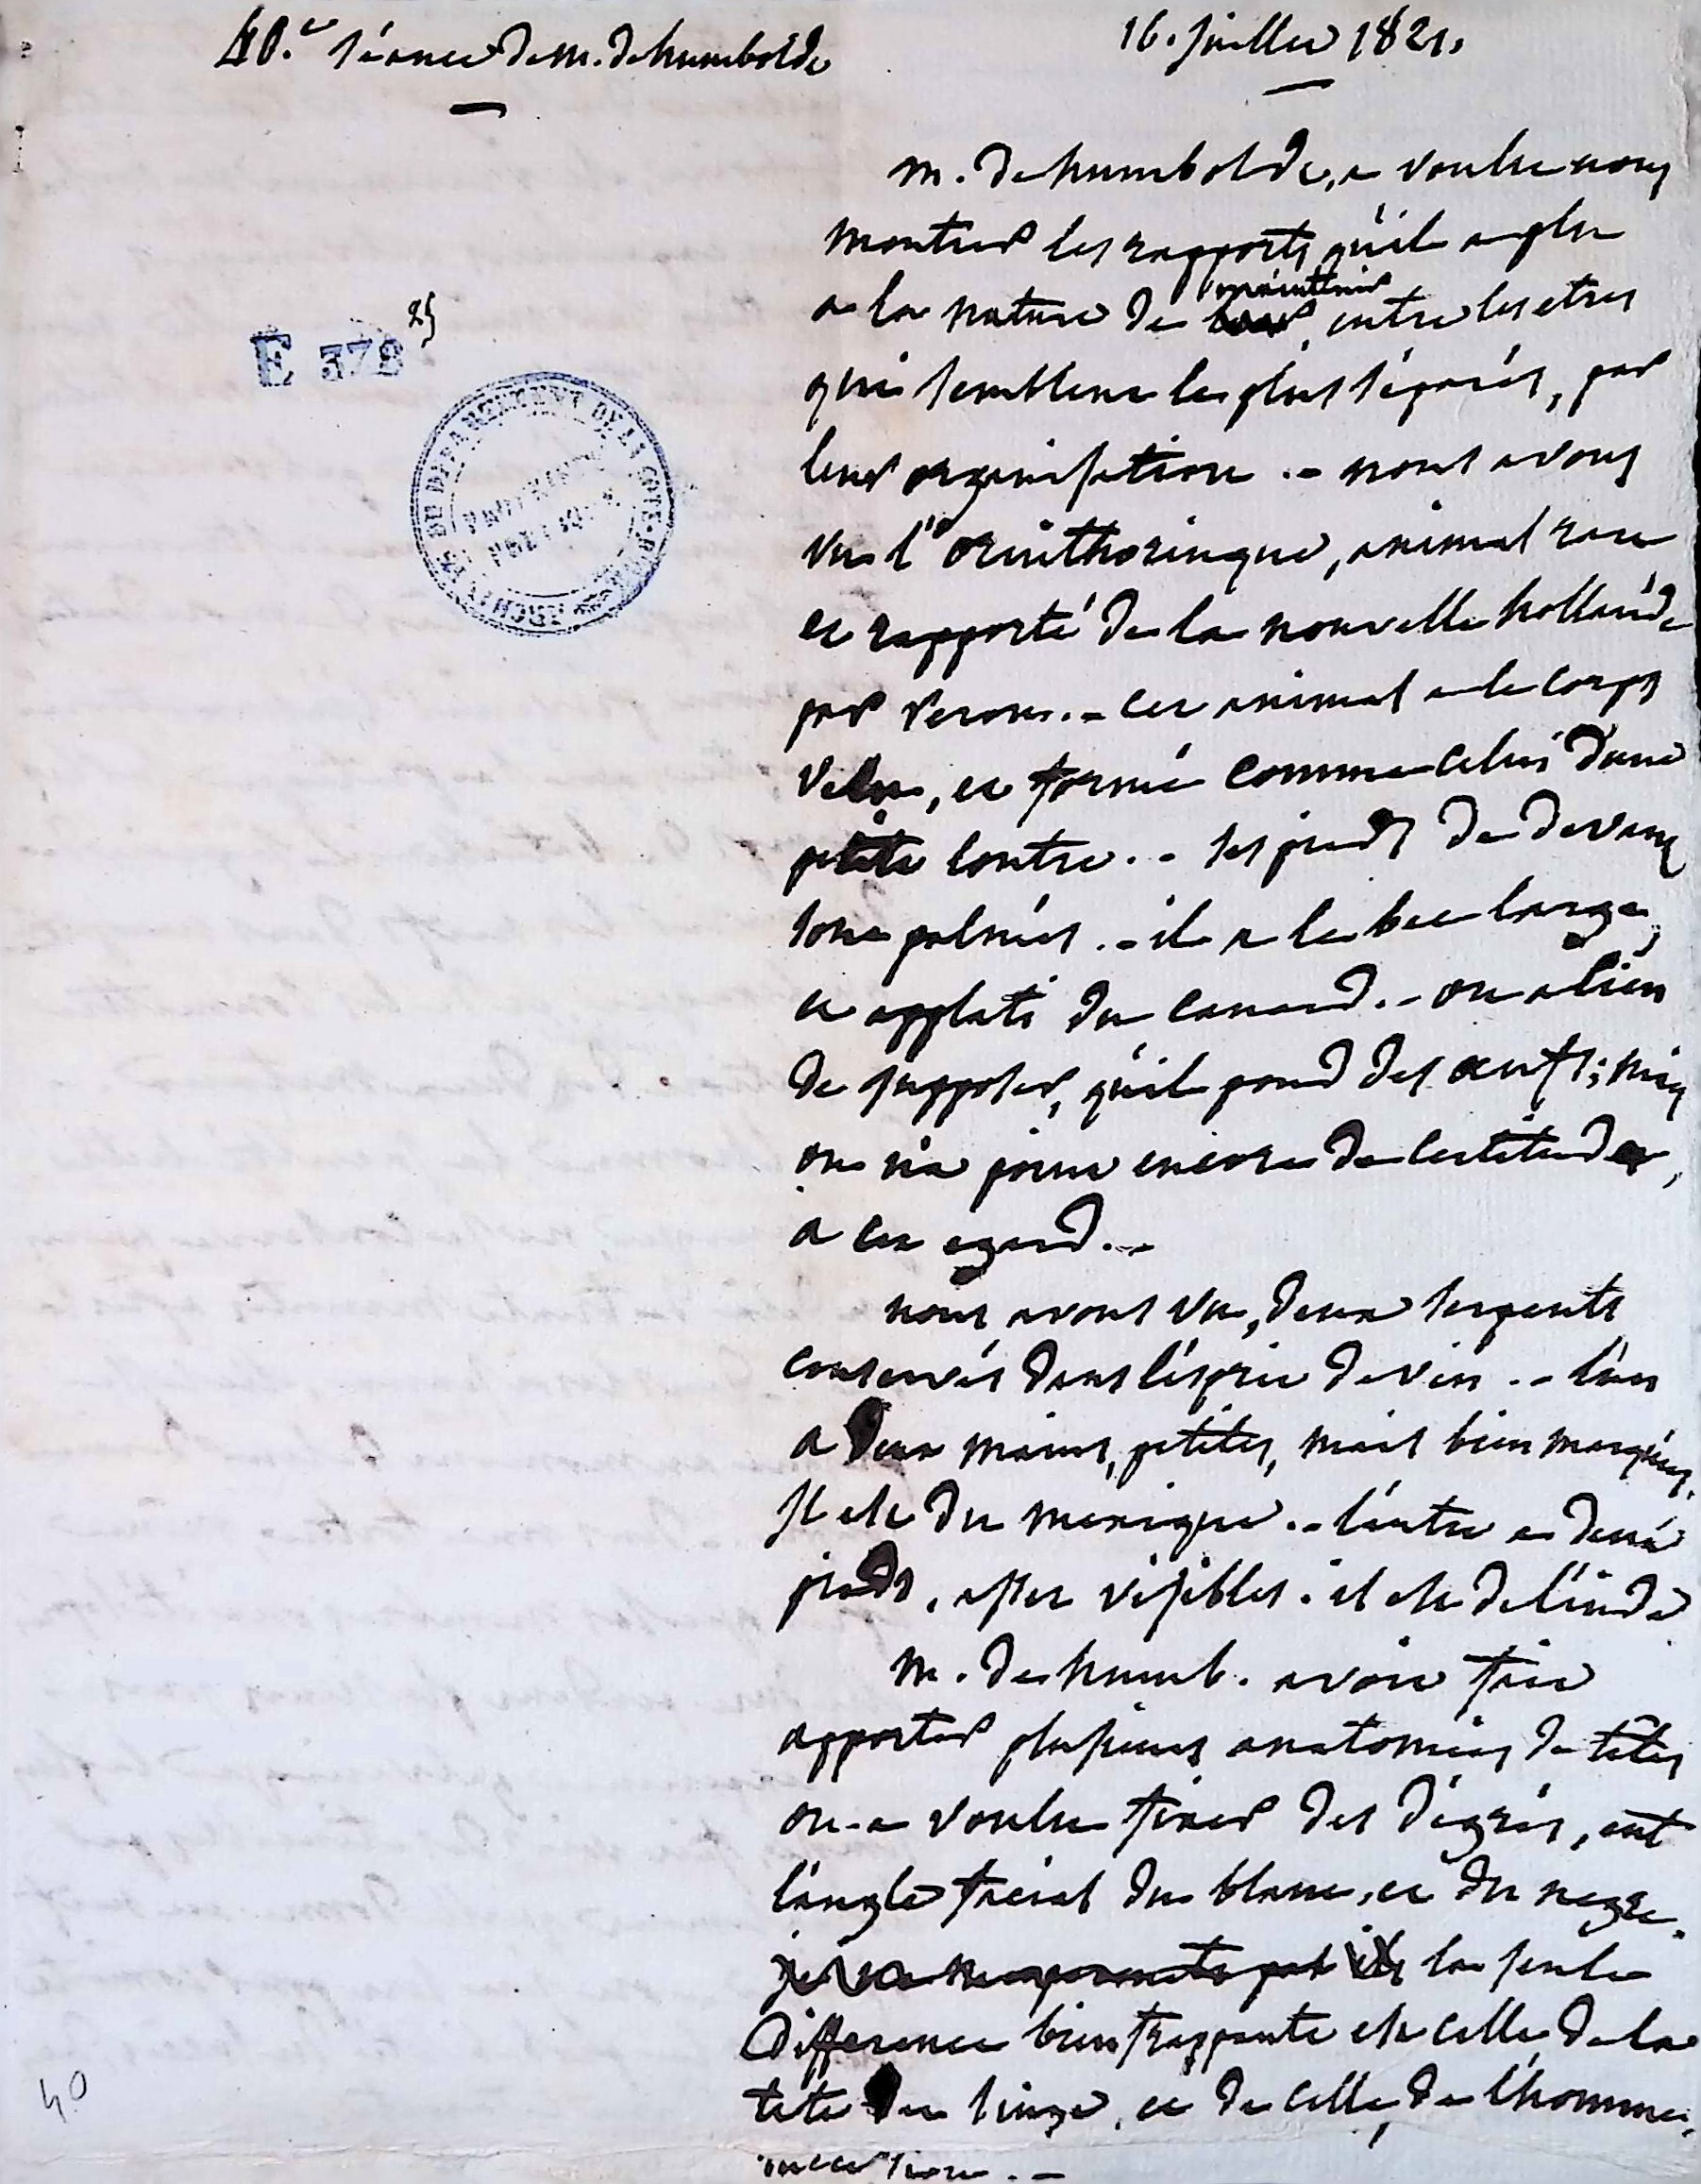 40.e séance de m. de humboldt
16. juillet 1821.
m. de humboldt, a voulu nous
montrer les rapports qu'il a plu
a la nature de maintenir entre les etres
qui semblent le plus séparés, par
leur organisation .- nous avons
vu l'ornithorinque, animal rare
et rapporté de la nouvelle hollande
par Peron .- cet animal a le corps
velu, et formé comme celui d'une
petite loutre .- ses pieds de devant
sont palmés .- il a le bec large,
et applati du canard .- on a lieu
de supposer, qu'il pond des œufs; mais
on n'a point encore de certitude,
a cet egard .-
nous avons vu, deux serpents
conservés dans l'esprit de vin .- l'un
a deux mains, petites, mais bien marquées.
Il est du mexique .- l'autre a deux
pieds, assez visibles. il est de l'inde
m. de humb. avoit fait
apporter plusieurs anatomies de têtes
on a voulu fixer des dégrés, ent
l'angle facial du blanc, et du negre.
la seule
différence bien frappante est celle de la
tete du singe, et de celle de l'homme.
E 378
25
ARCHIVES DU DÉPARTEMENT DE LA CÔTE-D'OR
40